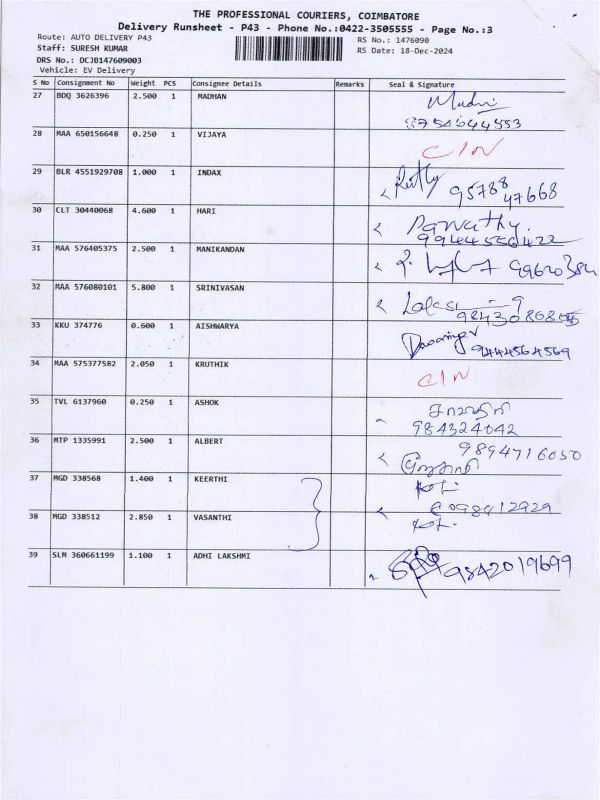 THE PROFESSIONAL COURIERS, COIMBATORE
Delivery Runsheet - P43 - Phone No.:0422-3505555 - Page No.:3
Route: AUTO DELIVERY P43 RS No.: 1476090
Staff: SURESH KUMAR RS Date: 18-Dec-2024
DRS No.: DCJB147609003
Vehicle: EV Delivery
S No Consignment No Weight PCS Consignee Details Remarks Seal & Signature
27 BDQ 3626396 2.500 1 MADHAN
8754644553
28 MAA 650156648 0.250 1 VIJAYA
CIN
29 BLR 4551929708 1.000 1 INDAX
95788
47668
30 CLT 30440068 4.600 1 HARI Parvathy.
9944556422
31 MAA 576405375 2.500 1 MANIKANDAN
32 MAA 576080101 5.800 1 SRINIVASAN
33 KKU 374776 0.600 1 AISHWARYA
9444564569
34 MAA 575377582 2.050 1 KRUTHIK
CIN
35 TVL 6137960 0.250 1 ASHOK
984324042
36 MTP 1335991 2.500 1 ALBERT 9894716050
37 MGD 338568 1.400 1 KEERTHI
38 MGD 338512 2.850 1 VASANTHI
39 SLM 360661199 1.100 1 ADHI LAKSHMI 9842019699